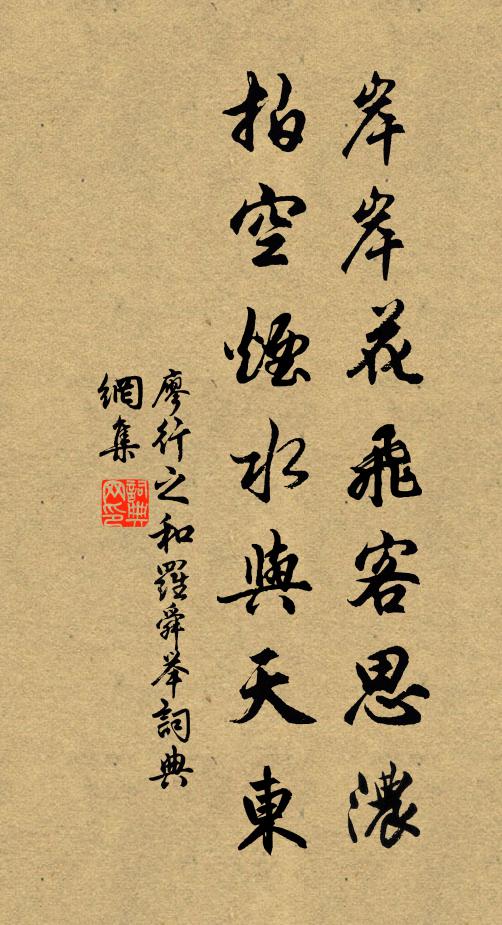 岸岸花飛客思濃
拍空煙水與天東
廖行之和羅舜举詞典
網集
詞典網印